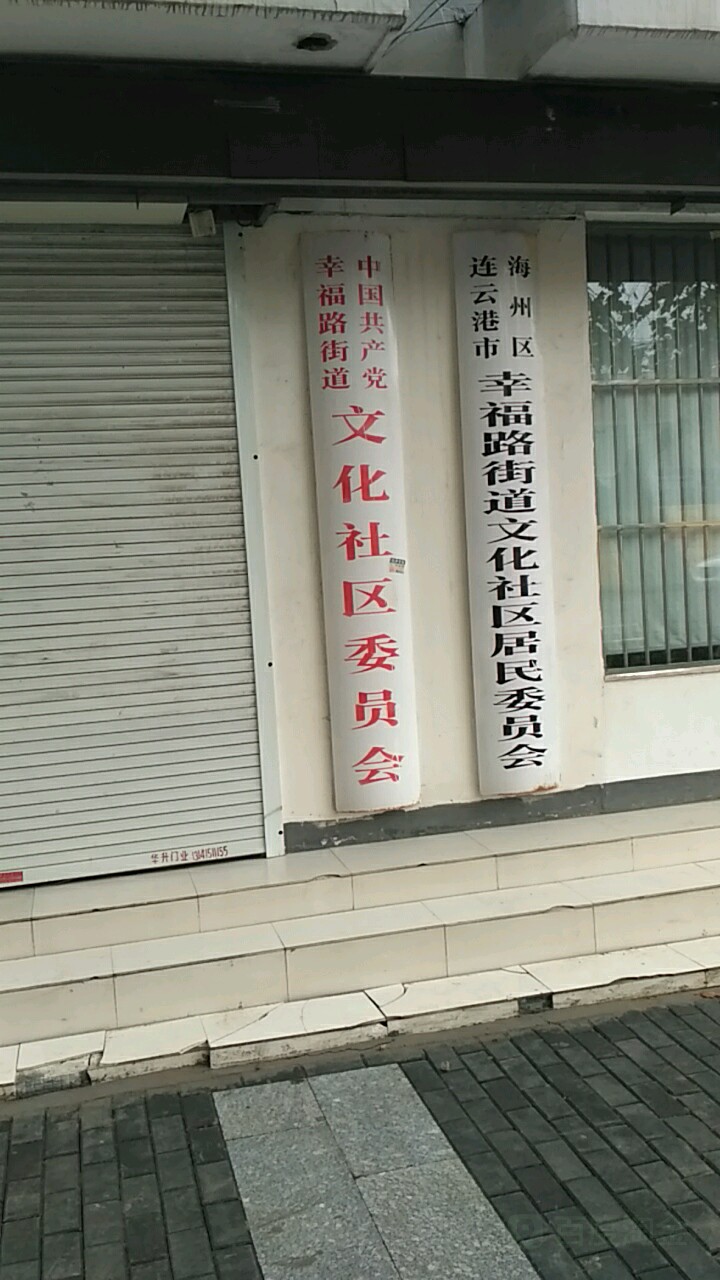 中国共产党
幸福路街道
文化社区委员会
海州区
连云港市
幸福路街道文化社区居民委员会
华升门业